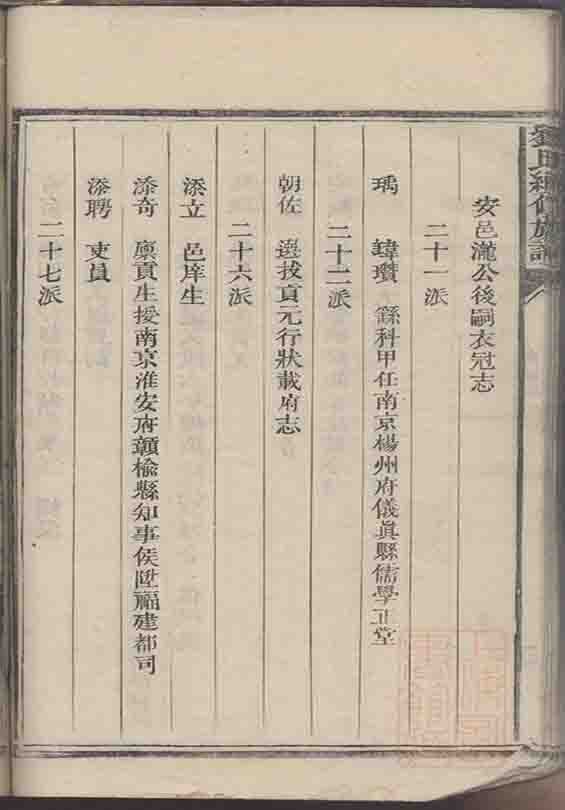 劉氏續修族譜
安邑瀧公後嗣衣冠志
二十一派
瑀 諱瓚 繇科甲任南京楊州府儀眞縣儒學正堂
二十二派
朝佐 選拔貢元行狀載府志
二十六派
添立 邑庠生
添奇 廩貢生授南京淮安府贛榆縣知事侯陞福建都司
添聘 吏員
二十七派